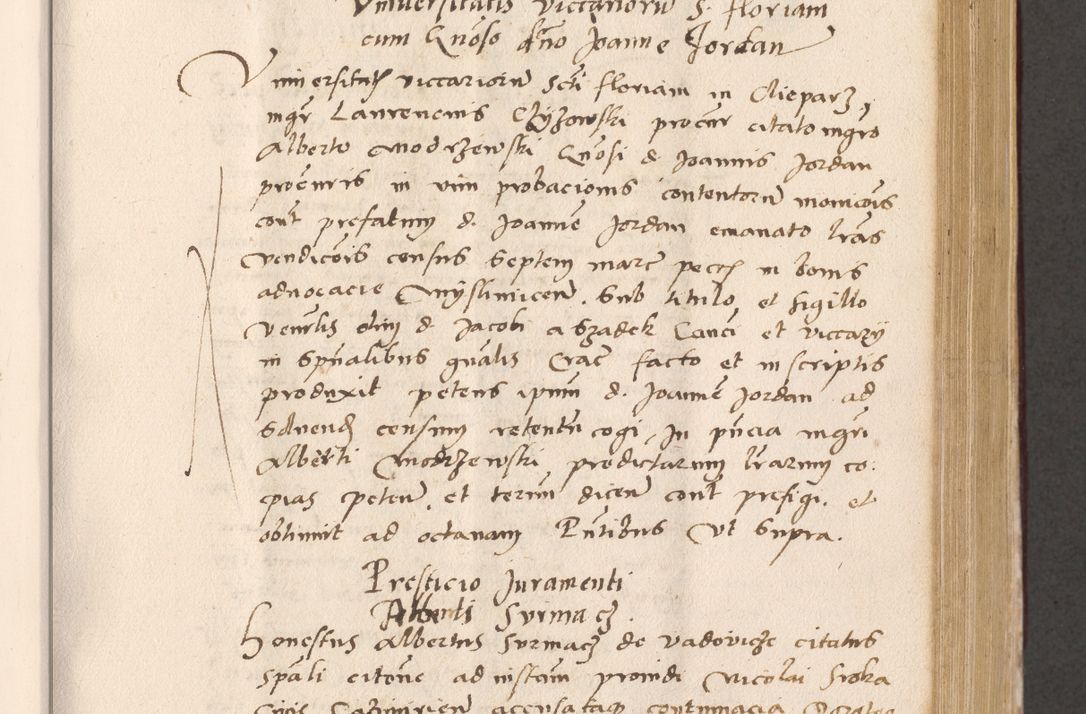 Universitatis viccariorū S. floriani
cum Gnōso dno Joanne Jordan
Universitatis viccariorū Scti floriani in Clepars,
mgr Laurencius Czyżowski procūr citato mgro
Alberto Modrzewski Gnōsi d. Joannis Jordan
procūris in vim probacionis contentorū monicōis
cont prefatum d. Joannē Jordan emanato lrās
vendicōis census septem marc pecc in bonis
advocacie Myslimicen. Sub titulo et sigillo
venrlis olim d. Jacobi a Szadek Canci et viccary
in spnālibus gnālis Crac facto et in scriptis
produxit petens ipsum d. Joannē Jordan ad
solvend censum retentū cogi, In pncia mgri
Alberti Modrzewski, predictarum lrarum co:
pias peten, et termīn dicen cont prefigi, et
obtinuit ad octavam Pntibus ut supra.
Presticio Juramenti
Alberti Surmacz.
Honestus Albertus Surmacz de vadoviche citatus
spāli citōne ad instam providi Nicolai Sroka
Civis Casimirien accusataq contumacia